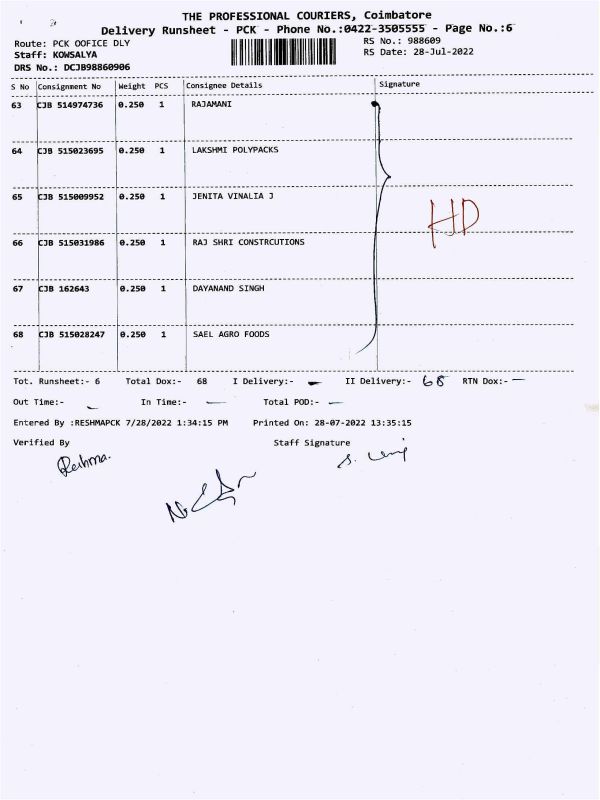 THE PROFESSIONAL COURIERS, Coimbatore
Delivery Runsheet - PCK - Phone No.:0422-3505555 - Page No.:6
Route: PCK OOFICE DLY
RS No.: 988609
Staff: KOWSALYA
RS Date: 28-Jul-2022
DRS No.: DCJB98860906
S No Consignment No Weight PCS Consignee Details Signature
63 CJB 514974736 0.250 1 RAJAMANI
64 CJB 515023695 0.250 1 LAKSHMI POLYPACKS
65 CJB 515009952 0.250 1 JENITA VINALIA J
HD
66 CJB 515031986 0.250 1 RAJ SHRI CONSTRCUTIONS
67 CJB 162643 0.250 1 DAYANAND SINGH
68 CJB 515028247 0.250 1 SAEL AGRO FOODS
Tot. Runsheet:- 6 Total Dox:- 68 I Delivery:- - II Delivery:- 68 RTN Dox:- -
Out Time:- - In Time:- - Total POD:- -
Entered By :RESHMAPCK 7/28/2022 1:34:15 PM Printed On: 28-07-2022 13:35:15
Verified By Staff Signature
Reshma.